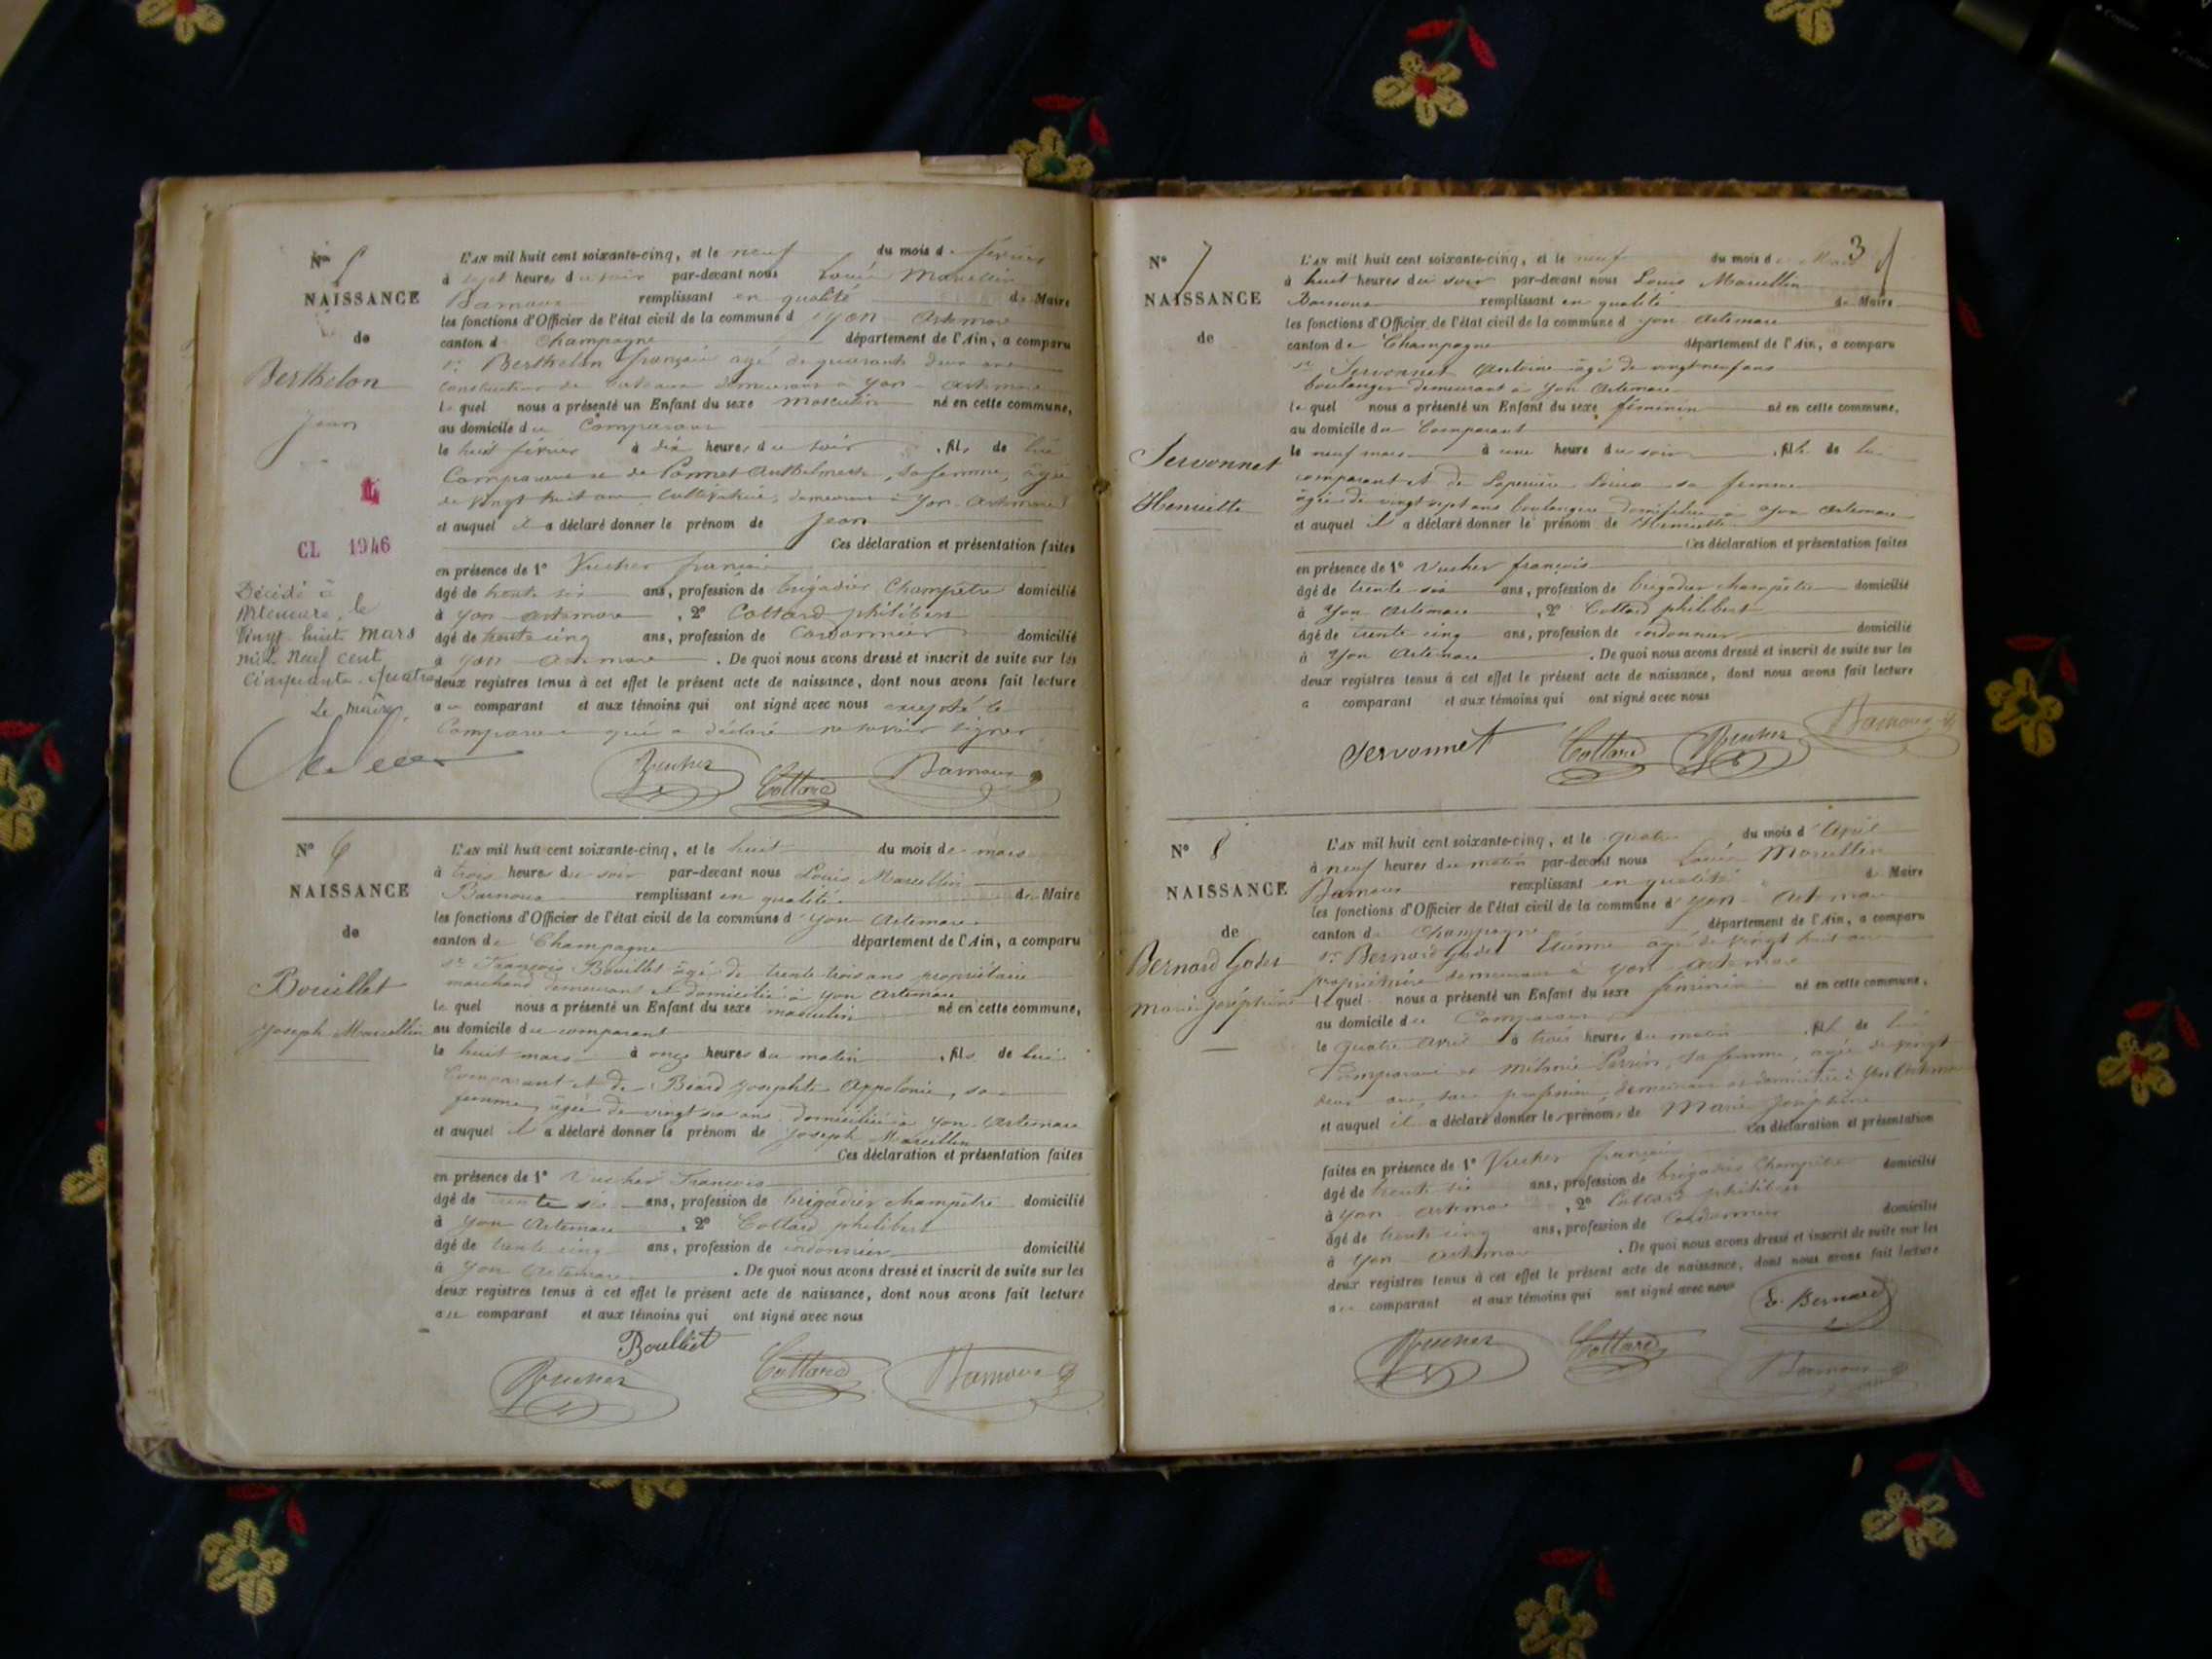 N° 5
NAISSANCE
de
Berthelon
Jean
CL 1946
Décédé à
Artemare, le
Vingt huit mars
mil neuf cent
cinquante quatre
Le Maire,
L'AN mil huit cent soixante-cinq, et le neuf du mois de février
à sept heures du soir par-devant nous Louis Marcellin
Barnoux remplissant en qualité de Maire
les fonctions d'Officier de l'état civil de la commune d'yon-Artemare
canton de Champagne département de l'Ain, a comparu
sr Berthelon françois agé de quarante deux ans
constructeur de bateaux demeurant à yon-artemare
lequel nous a présenté un Enfant du sexe masculin né en cette commune,
au domicile du Comparant
le huit février à dix heures du soir, fils de lui
Comparant et de Ponnet Anthelmette, sa femme, âgée
de vingt huit ans cultivatrice, demeurant à yon-artemare
et auquel il a déclaré donner le prénom de Jean
Ces déclaration et présentation faites
en présence de 1° Vucher françois
âgé de trente six ans, profession de brigadier Champêtre domicilié
à yon artemare, 2° Cottard philibert
âgé de trente cinq ans, profession de Cordonnier domicilié
à yon artemare. De quoi nous avons dressé et inscrit de suite sur les
deux registres tenus à cet effet le présent acte de naissance, dont nous avons fait lecture
au comparant et aux témoins qui ont signé avec nous excepté le
Comparant qui a déclaré ne savoir signer
Vucher Cottard Barnoux
N° 6
NAISSANCE
de
Bouillet
Joseph Marcellin
L'AN mil huit cent soixante-cinq, et le huit du mois de mars
à trois heures du soir par-devant nous Louis Marcellin
Barnoux remplissant en qualité de Maire
les fonctions d'Officier de l'état civil de la commune d'yon Artemare
canton de Champagne département de l'Ain, a comparu
sr François Bouillet âgé de trente trois ans propriétaire
marchand demeurant et domicilié à yon artemare
lequel nous a présenté un Enfant du sexe masculin né en cette commune,
au domicile du comparant
le huit mars à onze heures du matin, fils de lui
Comparant et de Béard Josephte Appolonie, sa
femme, âgée de vingt six ans domiciliée à yon-Artemare
et auquel il a déclaré donner le prénom de Joseph Marcellin
Ces déclaration et présentation faites
en présence de 1° Vucher François
âgé de trente six ans, profession de brigadier champêtre domicilié
à yon Artemare, 2° Cottard philibert
âgé de trente cinq ans, profession de cordonnier domicilié
à yon Artemare. De quoi nous avons dressé et inscrit de suite sur les
deux registres tenus à cet effet le présent acte de naissance, dont nous avons fait lecture
au comparant et aux témoins qui ont signé avec nous
Boulliet
Vucher Cottard Barnoux
3
N° 7
NAISSANCE
de
Servonnet
Henriette
L'AN mil huit cent soixante-cinq, et le neuf du mois de Mars
à huit heures du soir par-devant nous Louis Marcellin
Barnoux remplissant en qualité de Maire
les fonctions d'Officier de l'état civil de la commune d yon Artemare
canton de Champagne département de l'Ain, a comparu
sr Servonnet Antoine âgé de vingt neuf ans
boulanger demeurant à yon Artemare
lequel nous a présenté un Enfant du sexe féminin né en cette commune,
au domicile du Comparant
le neuf mars à une heure du soir, fille de lui
comparant et de Laperrière Louise sa femme
âgée de vingt sept ans boulangère domiciliée à yon artemare
et auquel il a déclaré donner le prénom de Henriette
Ces déclaration et présentation faites
en présence de 1° Vucher françois
âgé de trente six ans, profession de brigadier champêtre domicilié
à yon Artemare, 2° Cottard philibert
âgé de trente cinq ans, profession de cordonnier domicilié
à yon Artemare. De quoi nous avons dressé et inscrit de suite sur les
deux registres tenus à cet effet le présent acte de naissance, dont nous avons fait lecture
a comparant et aux témoins qui ont signé avec nous
Servonnet Cottard Vucher Barnoux
N° 8
NAISSANCE
de
Bernard Godet
Marie Joséphine
L'AN mil huit cent soixante-cinq, et le quatre du mois d'Avril
à neuf heures du matin par-devant nous Louis Marcellin
Barnoux remplissant en qualité de Maire
les fonctions d'Officier de l'état civil de la commune d'yon-Artemare
canton de Champagne département de l'Ain, a comparu
sr Bernard Godet Etienne agé de vingt huit ans
propriétaire demeurant à yon artemare
lequel nous a présenté un Enfant du sexe féminin né en cette commune,
au domicile du Comparant
le quatre avril à trois heures du matin, fille de lui
Comparant et Mélanie Perrin, sa femme, agée de vingt
deux ans, sans profession, demeurant et domiciliée à yon Artemare
et auquel il a déclaré donner les prénoms de Marie Joséphine
Ces déclaration et présentation
faites en présence de 1° Vucher françois
âgé de trente six ans, profession de brigadier Champêtre domicilié
à yon artemare, 2° Cottard philibert
âgé de trente cinq ans, profession de Cordonnier domicilié
à yon artemare. De quoi nous avons dressé et inscrit de suite sur les
deux registres tenus à cet effet le présent acte de naissance, dont nous avons fait lecture
au comparant et aux témoins qui ont signé avec nous
E. Bernard
Vucher Cottard Barnoux